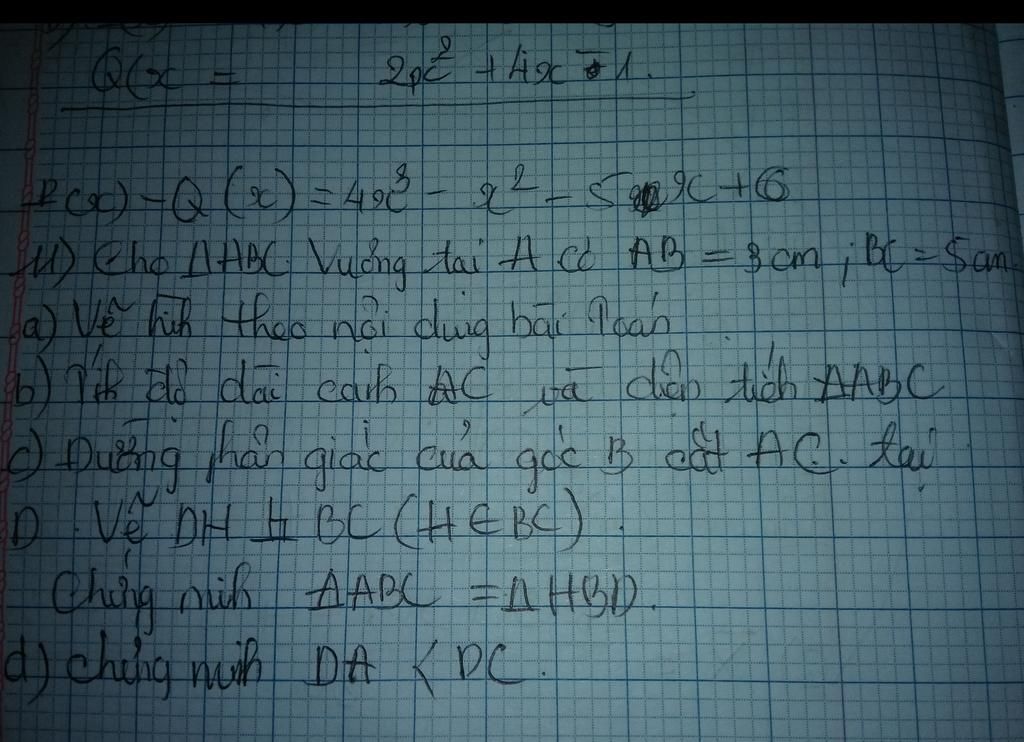 Q(x = 2x² + 4x - 1.
P(x) - Q(x) = 4x³ - x² - 5 x + 6
Cho ΔABC Vuông tại A có AB = 3 cm ; BC = 5 cm
a) Vẽ hình theo nội dung bài Toán
b) Tính độ dài cạnh AC và diện tích ΔABC
c) Đường phân giác của góc B cắt AC. tại
D. Vẽ DH ⊥ BC (H ∈ BC).
Chứng minh ΔABC = ΔHBD.
d) Chứng minh DA < DC.